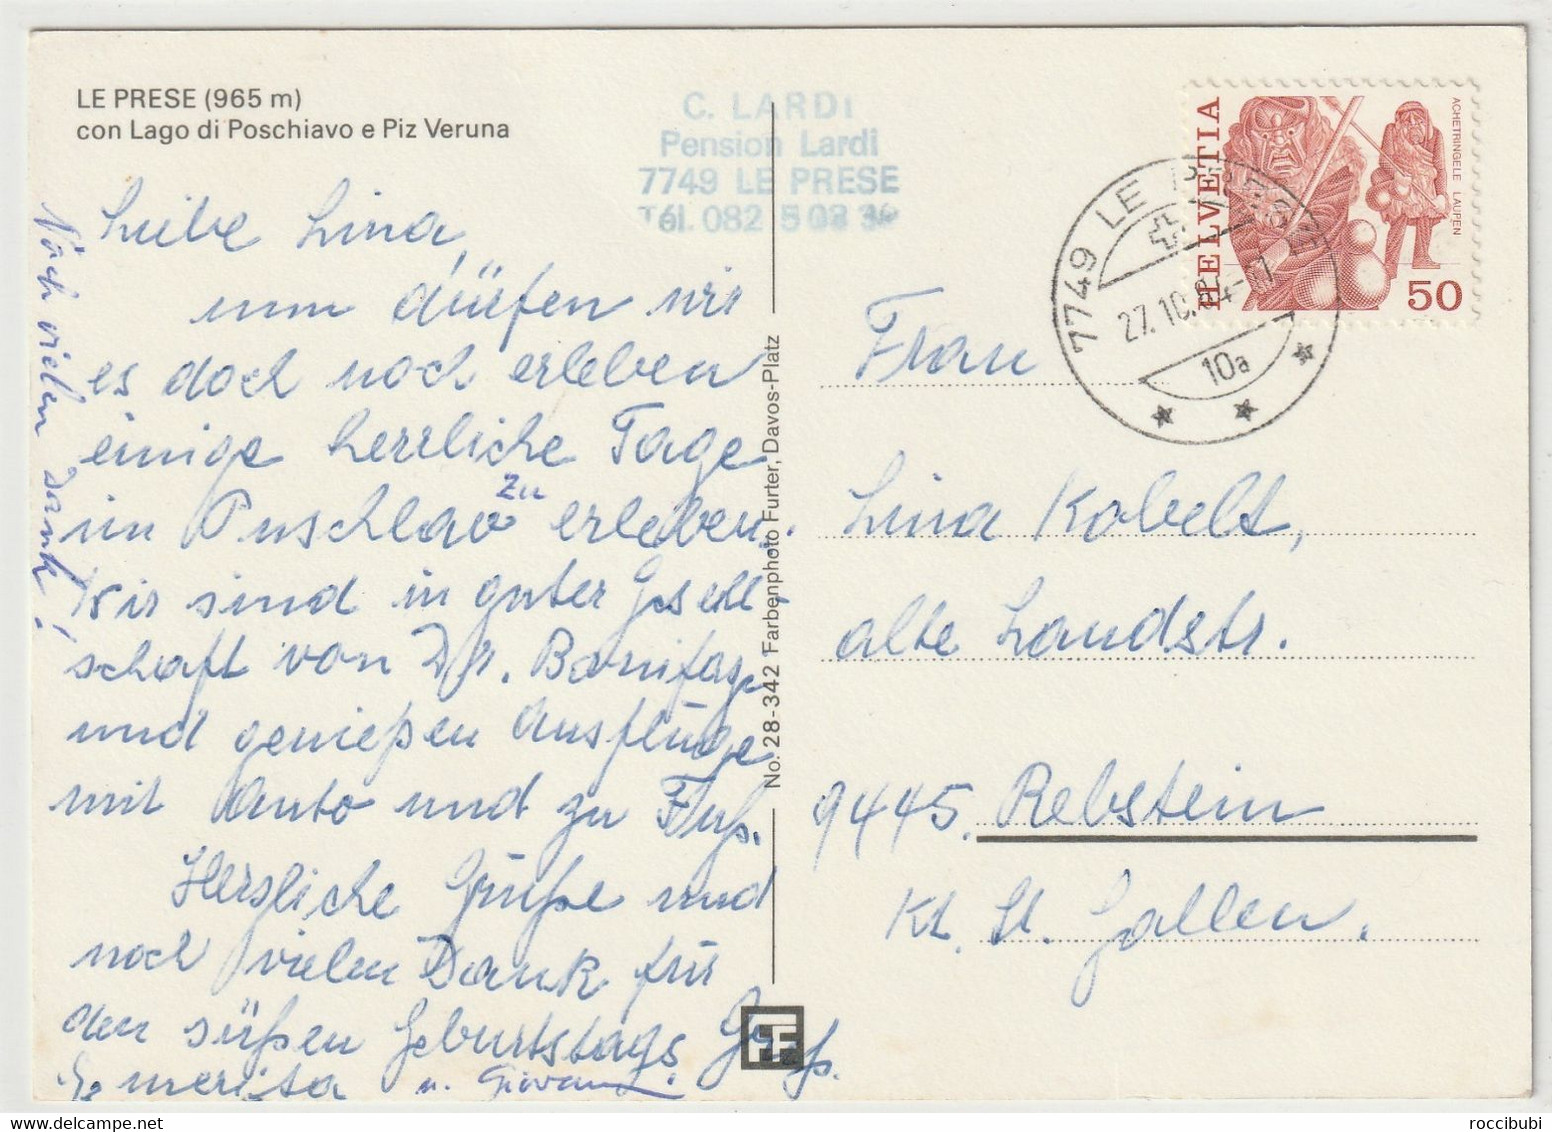 LE PRESE (965 m)
con Lago di Poschiavo e Piz Veruna
C. LARDI
Pension Lardi
7749 LE PRESE
Tél. 082 5
HELVETIA
ACHETRINGELE LAUPEN
50
7749 LE PRESE
27.10.84-
10a
Liebe Lina,
nun dürfen wir
es doch noch erleben
einige herrliche Tage
im Puschlav zu erleben.
Wir sind in guter Gesell-
schaft von Dr. Bonifaz
und genießen Ausflüge
mit Auto und zu Fuß.
Herzliche Grüße und
noch vielen Dank für
den süßen Geburtstags Gruß.
Emerita u. Giovanni
Noch vielen Dank!
No. 28-342 Farbenphoto Furter, Davos-Platz
FF
Frau
Lina Kobelt,
alte Landstr.
9445. Rebstein
Kt. St. Gallen.
roccibubi